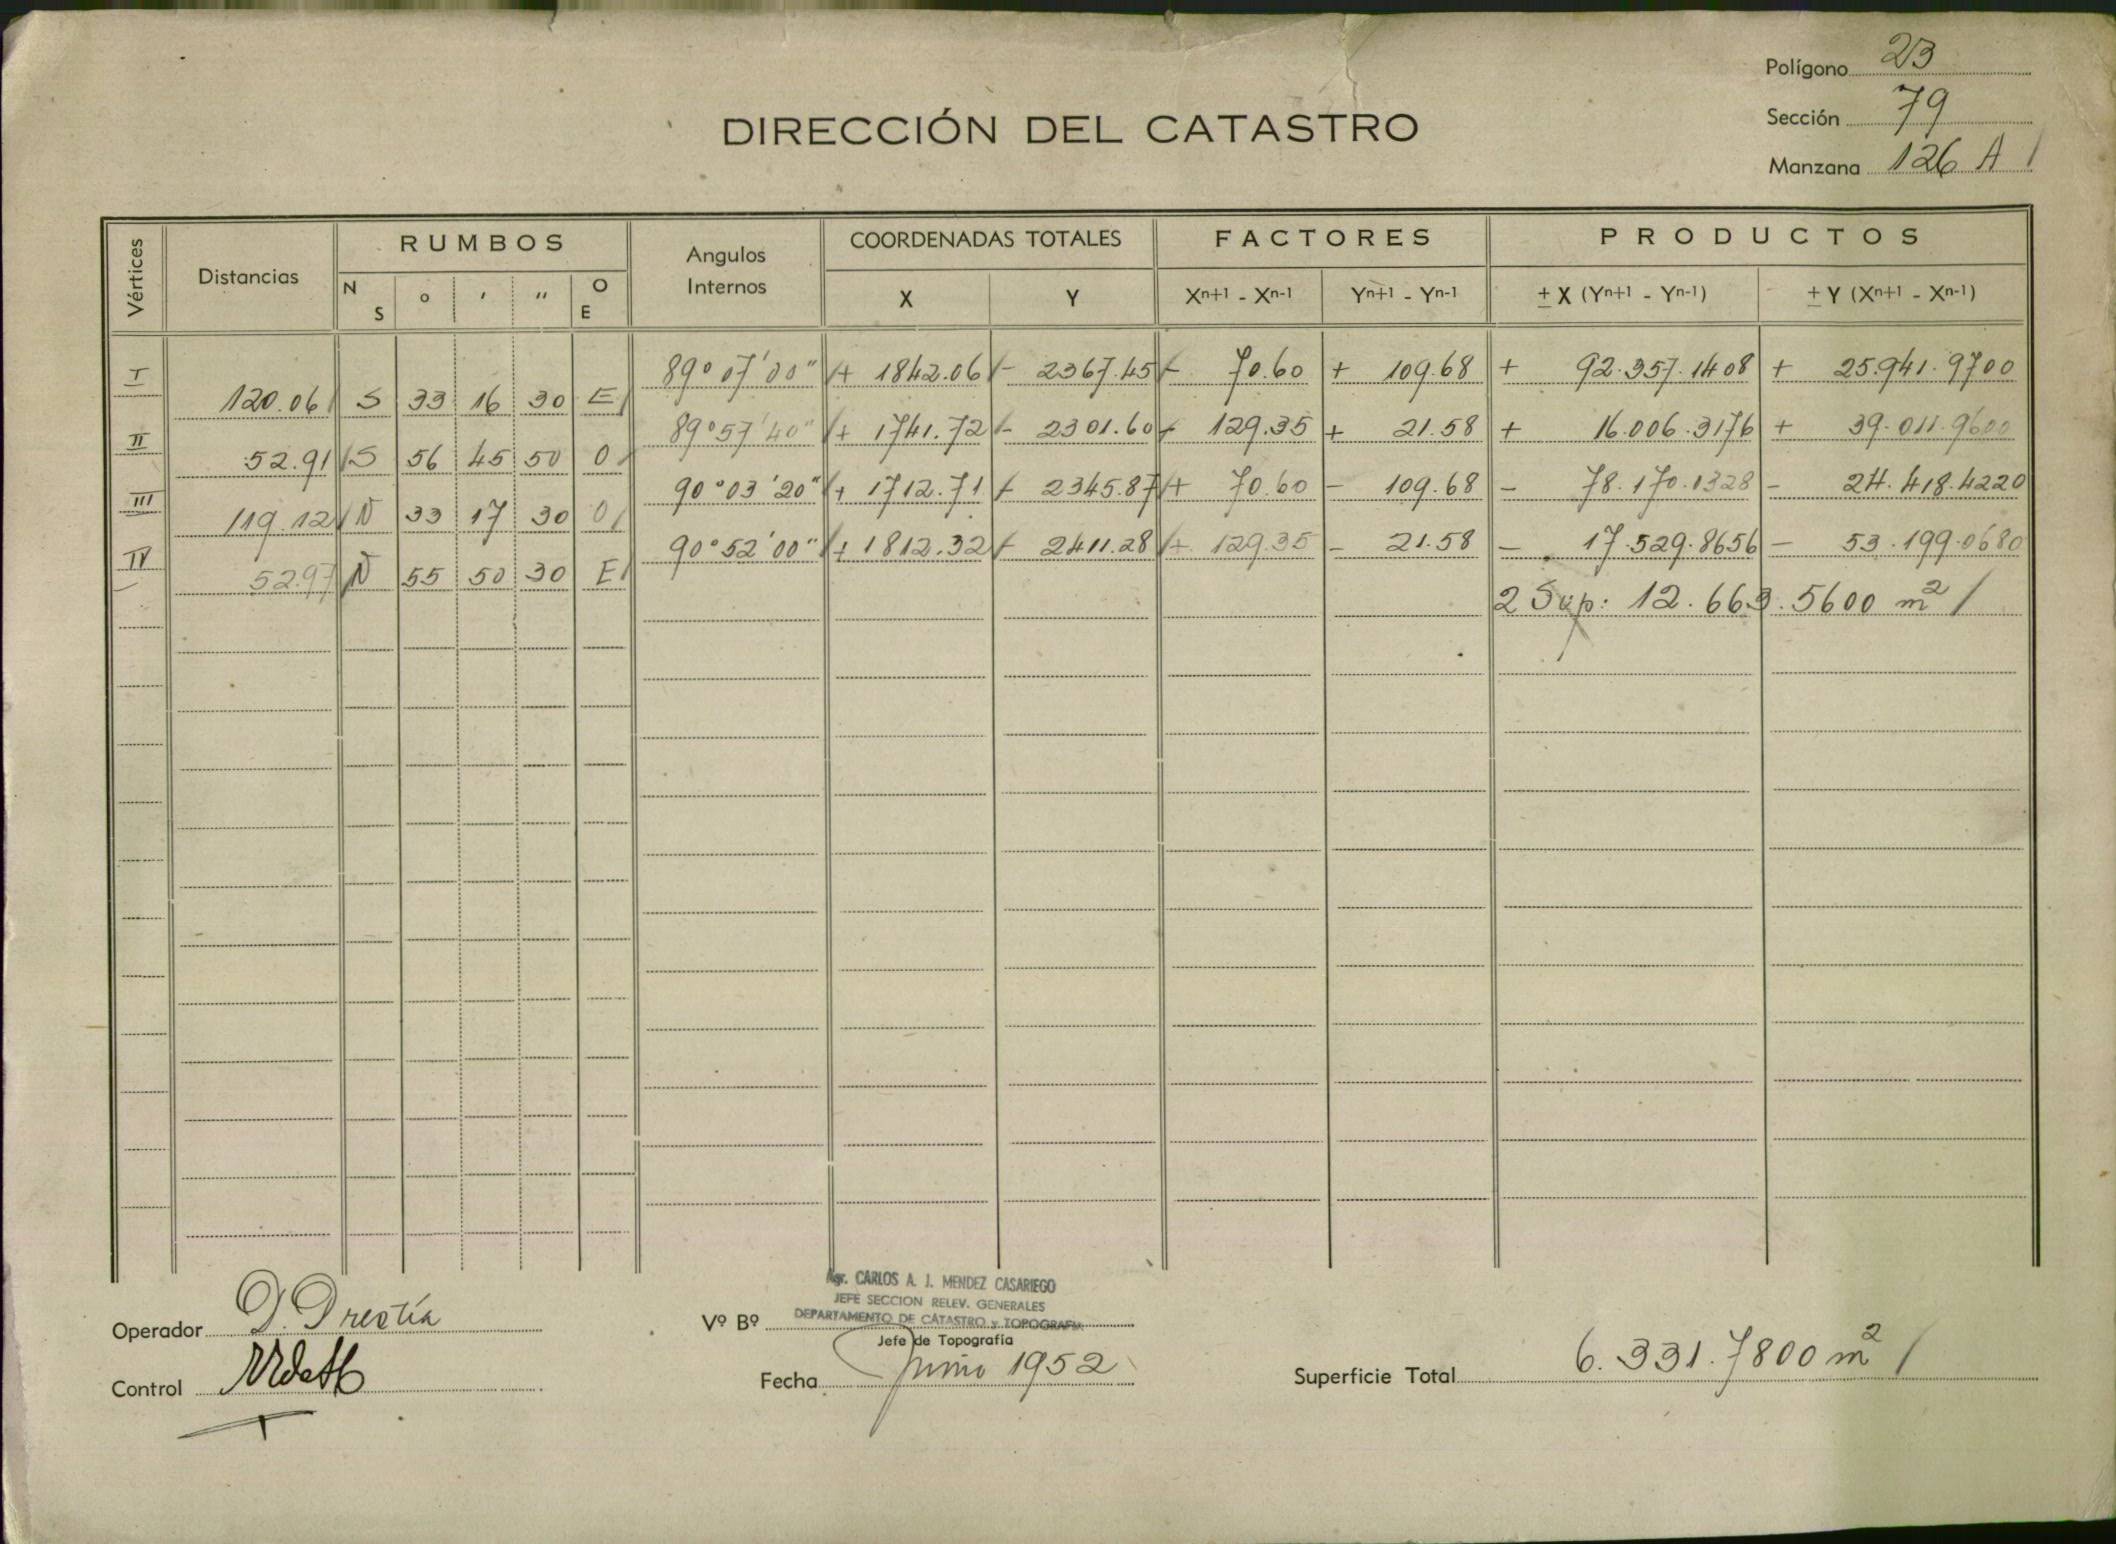 Polígono 23
Sección 79
Manzana 126 A /
DIRECCIÓN DEL CATASTRO
Vértices Distancias RUMBOS Angulos Internos COORDENADAS TOTALES FACTORES PRODUCTOS
N S ° ' " O E X Y Xn+1 - Xn-1 Yn+1 - Yn-1 ± X (Yn+1 - Yn-1) ± Y (Xn+1 - Xn-1)
I 89°07'00" + 1842.06 - 2367.45 - 70.60 + 109.68 + 92.357.1408 + 25.941.9700
120.06 S 33 16 30 E
II 89°57'40" + 1741.72 - 2301.60 - 129.35 + 21.58 + 16.006.3176 + 39.011.9600
52.91 S 56 45 50 O
III 90°03'20" + 1712.71 - 2345.87 + 70.60 - 109.68 - 78.170.0328 - 24.418.4220
119.12 N 33 17 30 O
IV 90°52'00" + 1812.32 - 2411.28 + 129.35 - 21.58 - 17.529.8656 - 53.199.0680
52.97 N 55 50 30 E
2 Sup: 12.663.5600 m² /
Agr. CARLOS A. J. MENDEZ CASARIEGO
JEFE SECCION RELEV. GENERALES
DEPARTAMENTO DE CATASTRO y TOPOGRAFIA
Operador Vº Bº
Jefe de Topografía
Control Fecha Junio 1952 Superficie Total 6.331.7800 m² /